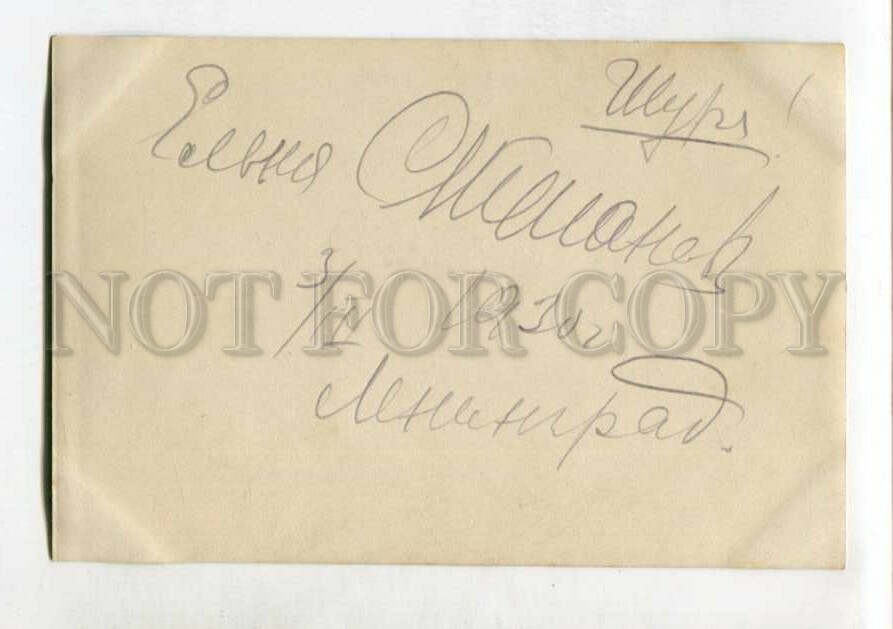 Шура!
Елена Степанов
3/III 1930 г
Ленинград.
NOT FOR COPY